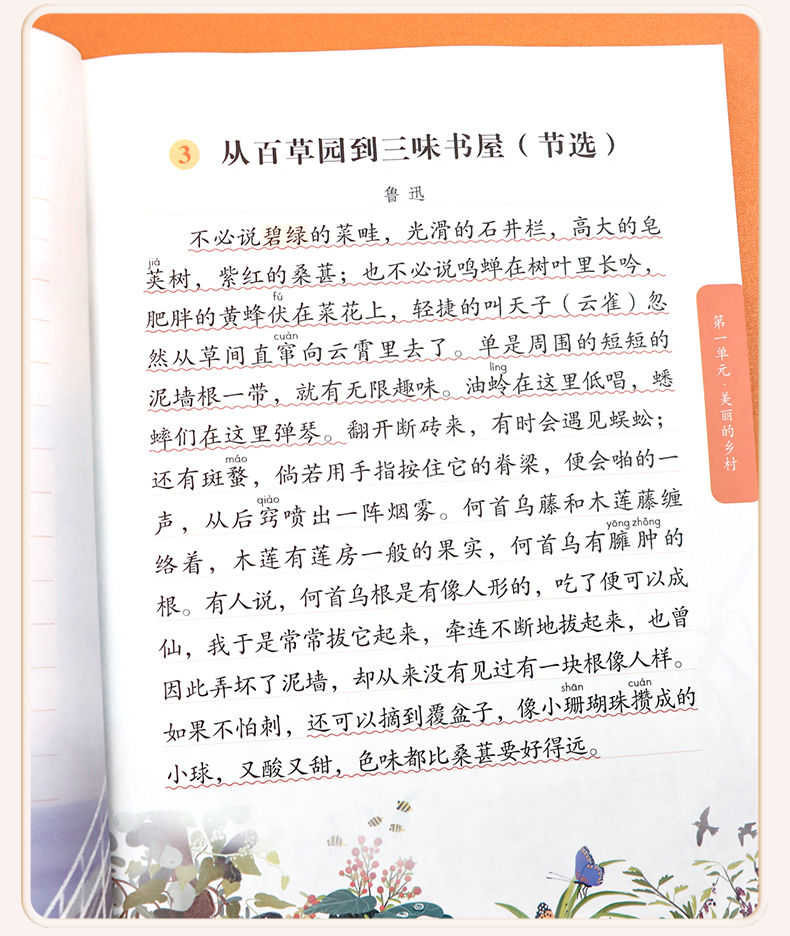 3 从百草园到三味书屋（节选）
鲁迅
不必说碧绿的菜畦，光滑的石井栏，高大的皂
jiá
荚树，紫红的桑葚；也不必说鸣蝉在树叶里长吟，
fú
肥胖的黄蜂伏在菜花上，轻捷的叫天子（云雀）忽
cuàn
然从草间直窜向云霄里去了。单是周围的短短的
líng
泥墙根一带，就有无限趣味。油蛉在这里低唱，蟋
蟀们在这里弹琴。翻开断砖来，有时会遇见蜈蚣；
máo
还有斑蝥，倘若用手指按住它的脊梁，便会啪的一
qiào
声，从后窍喷出一阵烟雾。何首乌藤和木莲藤缠
yōng zhǒng
络着，木莲有莲房一般的果实，何首乌有臃肿的
根。有人说，何首乌根是有像人形的，吃了便可以成
仙，我于是常常拔它起来，牵连不断地拔起来，也曾
因此弄坏了泥墙，却从来没有见过有一块根像人样。
shān cuán
如果不怕刺，还可以摘到覆盆子，像小珊瑚珠攒成的
小球，又酸又甜，色味都比桑葚要好得远。
第一单元·美丽的乡村